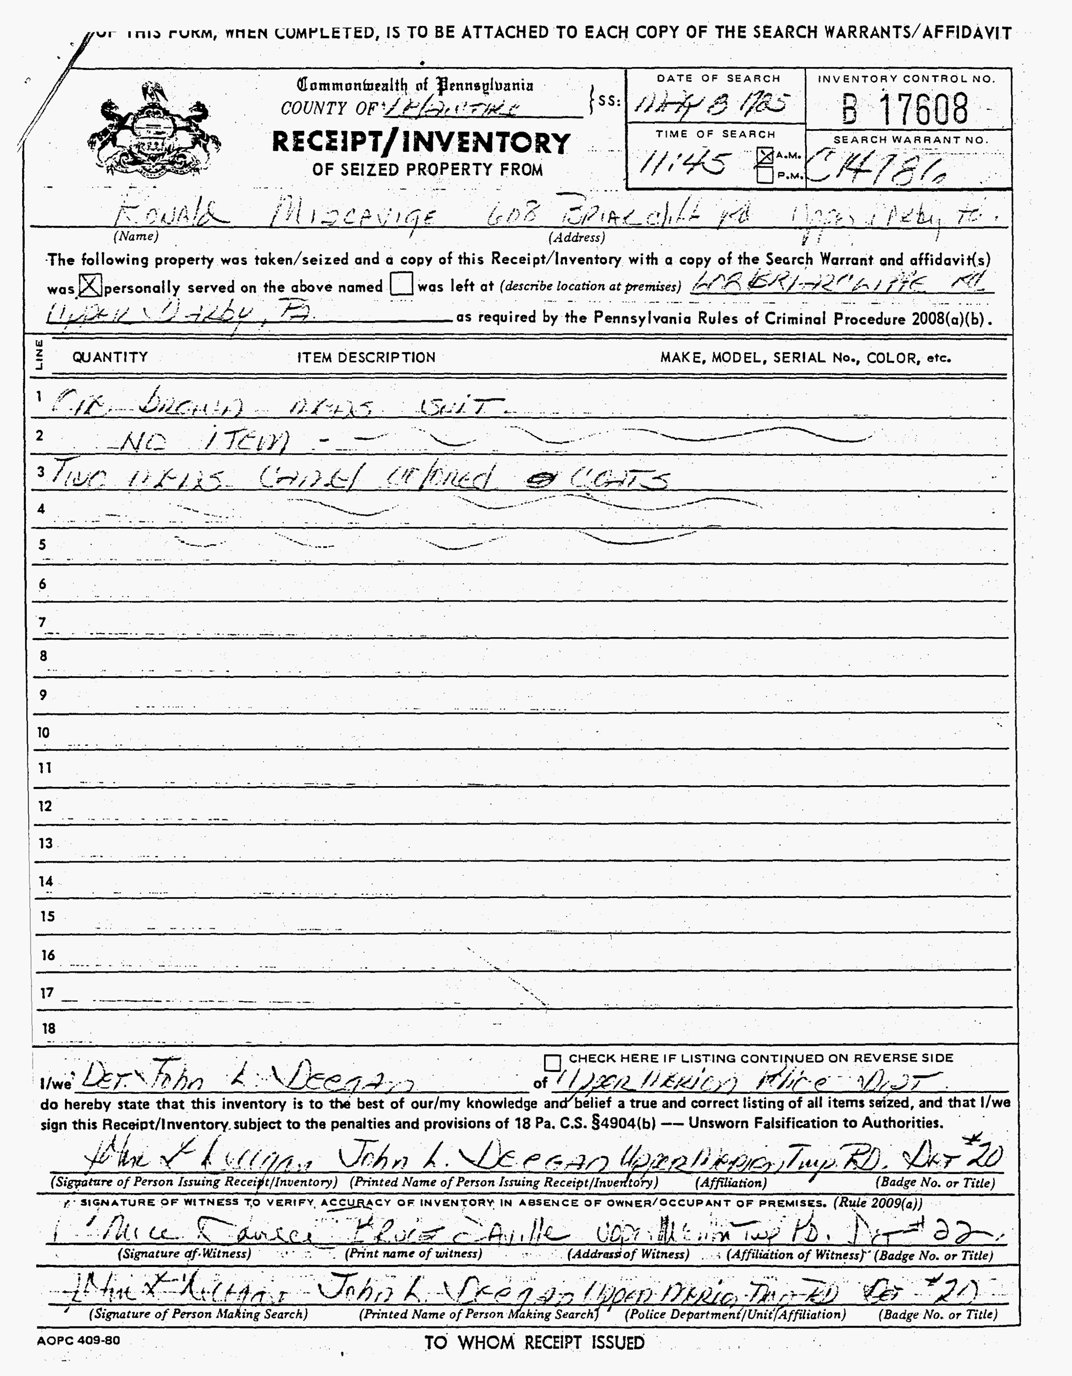 OF THIS FORM, WHEN COMPLETED, IS TO BE ATTACHED TO EACH COPY OF THE SEARCH WARRANTS/AFFIDAVIT
Commonwealth of Pennsylvania
COUNTY OF
}SS:
RECEIPT/INVENTORY
OF SEIZED PROPERTY FROM
DATE OF SEARCH
MAY 8 1985
INVENTORY CONTROL NO.
B 17608
TIME OF SEARCH
11:45 A.M. P.M.
SEARCH WARRANT NO.
C14786
RONALD MISCAVIGE 608 BRIARCLIFF Rd Upper Darby
(Name) (Address)
The following property was taken/seized and a copy of this Receipt/Inventory with a copy of the Search Warrant and affidavit(s)
was personally served on the above named was left at (describe location at premises) 608 BRIARCLIFFE Rd
UPPER DARBY, PA as required by the Pennsylvania Rules of Criminal Procedure 2008(a)(b).
LINE QUANTITY ITEM DESCRIPTION MAKE, MODEL, SERIAL No., COLOR, etc.
1 BROWN MENS SUIT
2 NO ITEM
3 TWO MENS CAMEL COLORED COATS
4
5
6
7
8
9
10
11
12
13
14
15
16
17
18
CHECK HERE IF LISTING CONTINUED ON REVERSE SIDE
I/we DET. John L. DEEGAN of UPPER MERION Police DEPT
do hereby state that this inventory is to the best of our/my knowledge and belief a true and correct listing of all items seized, and that I/we
sign this Receipt/Inventory subject to the penalties and provisions of 18 Pa. C.S. §4904(b) — Unsworn Falsification to Authorities.
John L. Deegan John L. DEEGAN UPPER MERION Twp. PD. DET #20
(Signature of Person Issuing Receipt/Inventory) (Printed Name of Person Issuing Receipt/Inventory) (Affiliation) (Badge No. or Title)
SIGNATURE OF WITNESS TO VERIFY ACCURACY OF INVENTORY IN ABSENCE OF OWNER/OCCUPANT OF PREMISES. (Rule 2009(a))
BRUCE SAVILLE Upper Merion Twp PD. DET #22
(Signature of Witness) (Print name of witness) (Address of Witness) (Affiliation of Witness) (Badge No. or Title)
John L. Deegan John L. DEEGAN UPPER MERION Twp PD DET #20
(Signature of Person Making Search) (Printed Name of Person Making Search) (Police Department/Unit/Affiliation) (Badge No. or Title)
AOPC 409-80
TO WHOM RECEIPT ISSUED